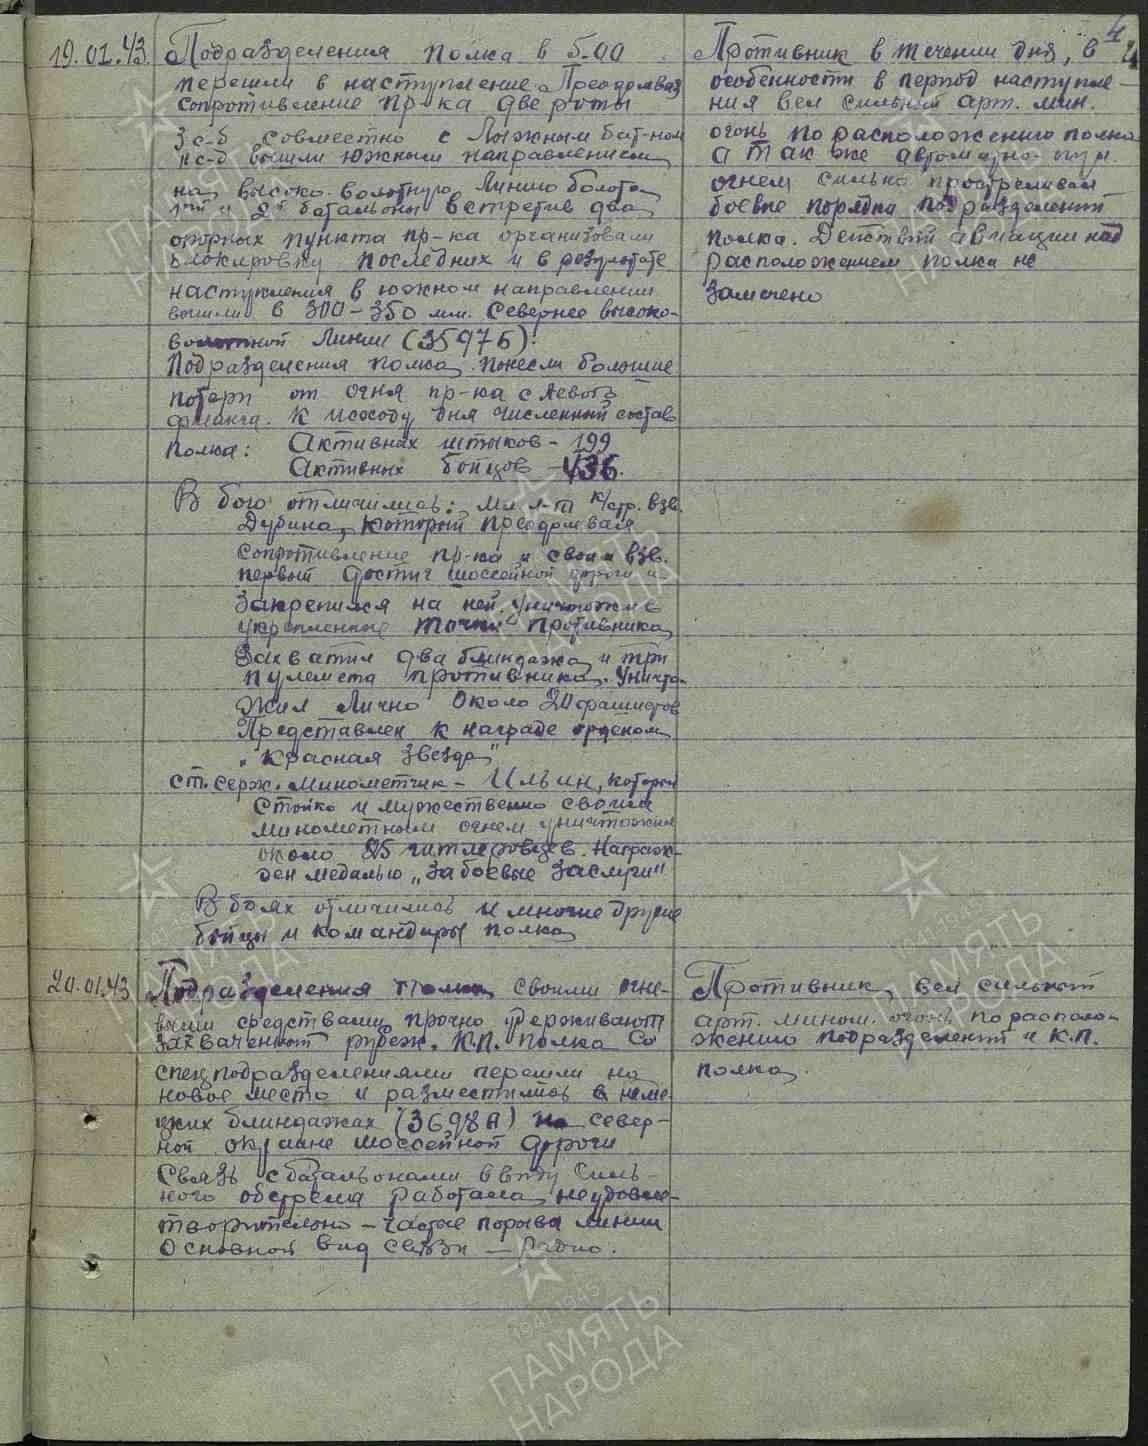 4
19.01.43
Подразделения полка в 5.00
перешли в наступление. Преодолевая
сопротивление пр-ка две роты
3 с-б совместно с Лыжным бат-ном
вышли южным направлением
на высоко-вольтную Линию болота
1й и 2й батальоны встретив два
опорных пункта пр-ка организовали
блокировку последних и в результате
наступления в южном направлении
вышли в 300-350 мт. Севернее высоко-
вольтной Линии (3597Б).
Подразделения полка понесли большие
потери от огня пр-ка с левого
фланга. К исходу дня численный состав
полка: Активных штыков - 199
Активных бойцов - 436.
В бою отличились: мл. л-т к/стр. взв.
Дубина, который преодолевая
сопротивление пр-ка и своим взв.
первый достиг шоссейной дороги и
закрепился на ней, уничтожив
укрепленные точки противника
Захватил два блиндажа и три
пулемета противника. Уничто-
жил Лично около 20 фашистов
Представлен к награде орденом
„Красная звезда"
ст. серж. минометчик - Ильин, который
стойко и мужественно своим
минометным огнем уничтожил
около 25 гитлеровцев. Награж-
ден медалью „За боевые заслуги"
В боях отличились и многие другие
бойцы и командиры полка
Противник в течении дня, в
особенности в период наступле-
ния вел сильный арт. мин.
огонь по расположению полка
а так же автоматно-пул.
огнем сильно простреливал
боевые порядки подразделений
полка. Действий авиации над
расположением полка не
замечено
20.01.43
Подразделения полка своими огне-
выми средствами прочно удерживают
захваченный рубеж. К.П. полка со
спецподразделениями перешли на
новое место и разместились в неме-
цких блиндажах (3698А) на север-
ной окраине шоссейной дороги
Связь с батальонами ввиду силь-
ного обстрела работала неудовле-
творительно - частые порыва линии
Основной вид связи - радио.
Противник вел сильный
арт. мином. огонь по располо-
жению подразделений и К.П.
полка.
ПАМЯТЬ
НАРОДА
1941-1945